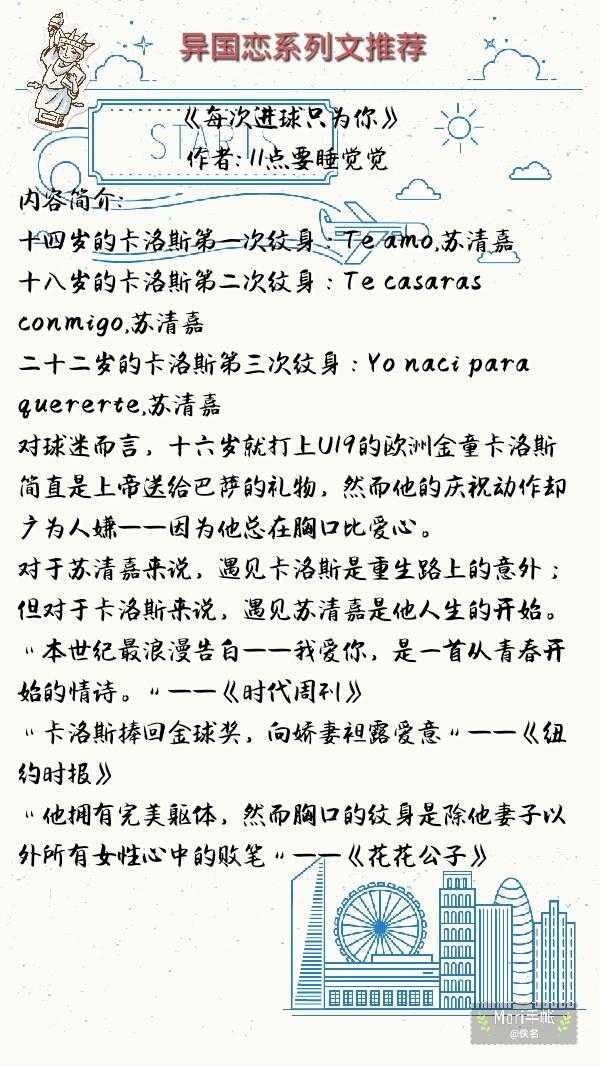 异国恋系列文推荐
《每次进球只为你》
START
作者:11点要睡觉觉
内容简介:
十四岁的卡洛斯第一次纹身:Te amo,苏清嘉
十八岁的卡洛斯第二次纹身:Te casaras
conmigo,苏清嘉
二十二岁的卡洛斯第三次纹身:Yo naci para
quererte,苏清嘉
对球迷而言，十六岁就打上U19的欧洲金童卡洛斯
简直是上帝送给巴萨的礼物，然而他的庆祝动作却
广为人嫌——因为他总在胸口比爱心。
对于苏清嘉来说，遇见卡洛斯是重生路上的意外；
但对于卡洛斯来说，遇见苏清嘉是他人生的开始。
"本世纪最浪漫告白——我爱你，是一首从青春开
始的情诗。"——《时代周刊》
"卡洛斯捧回金球奖，向娇妻袒露爱意"——《纽
约时报》
"他拥有完美躯体，然而胸口的纹身是除他妻子以
外所有女性心中的败笔"——《花花公子》
Mori手帐
@佚名